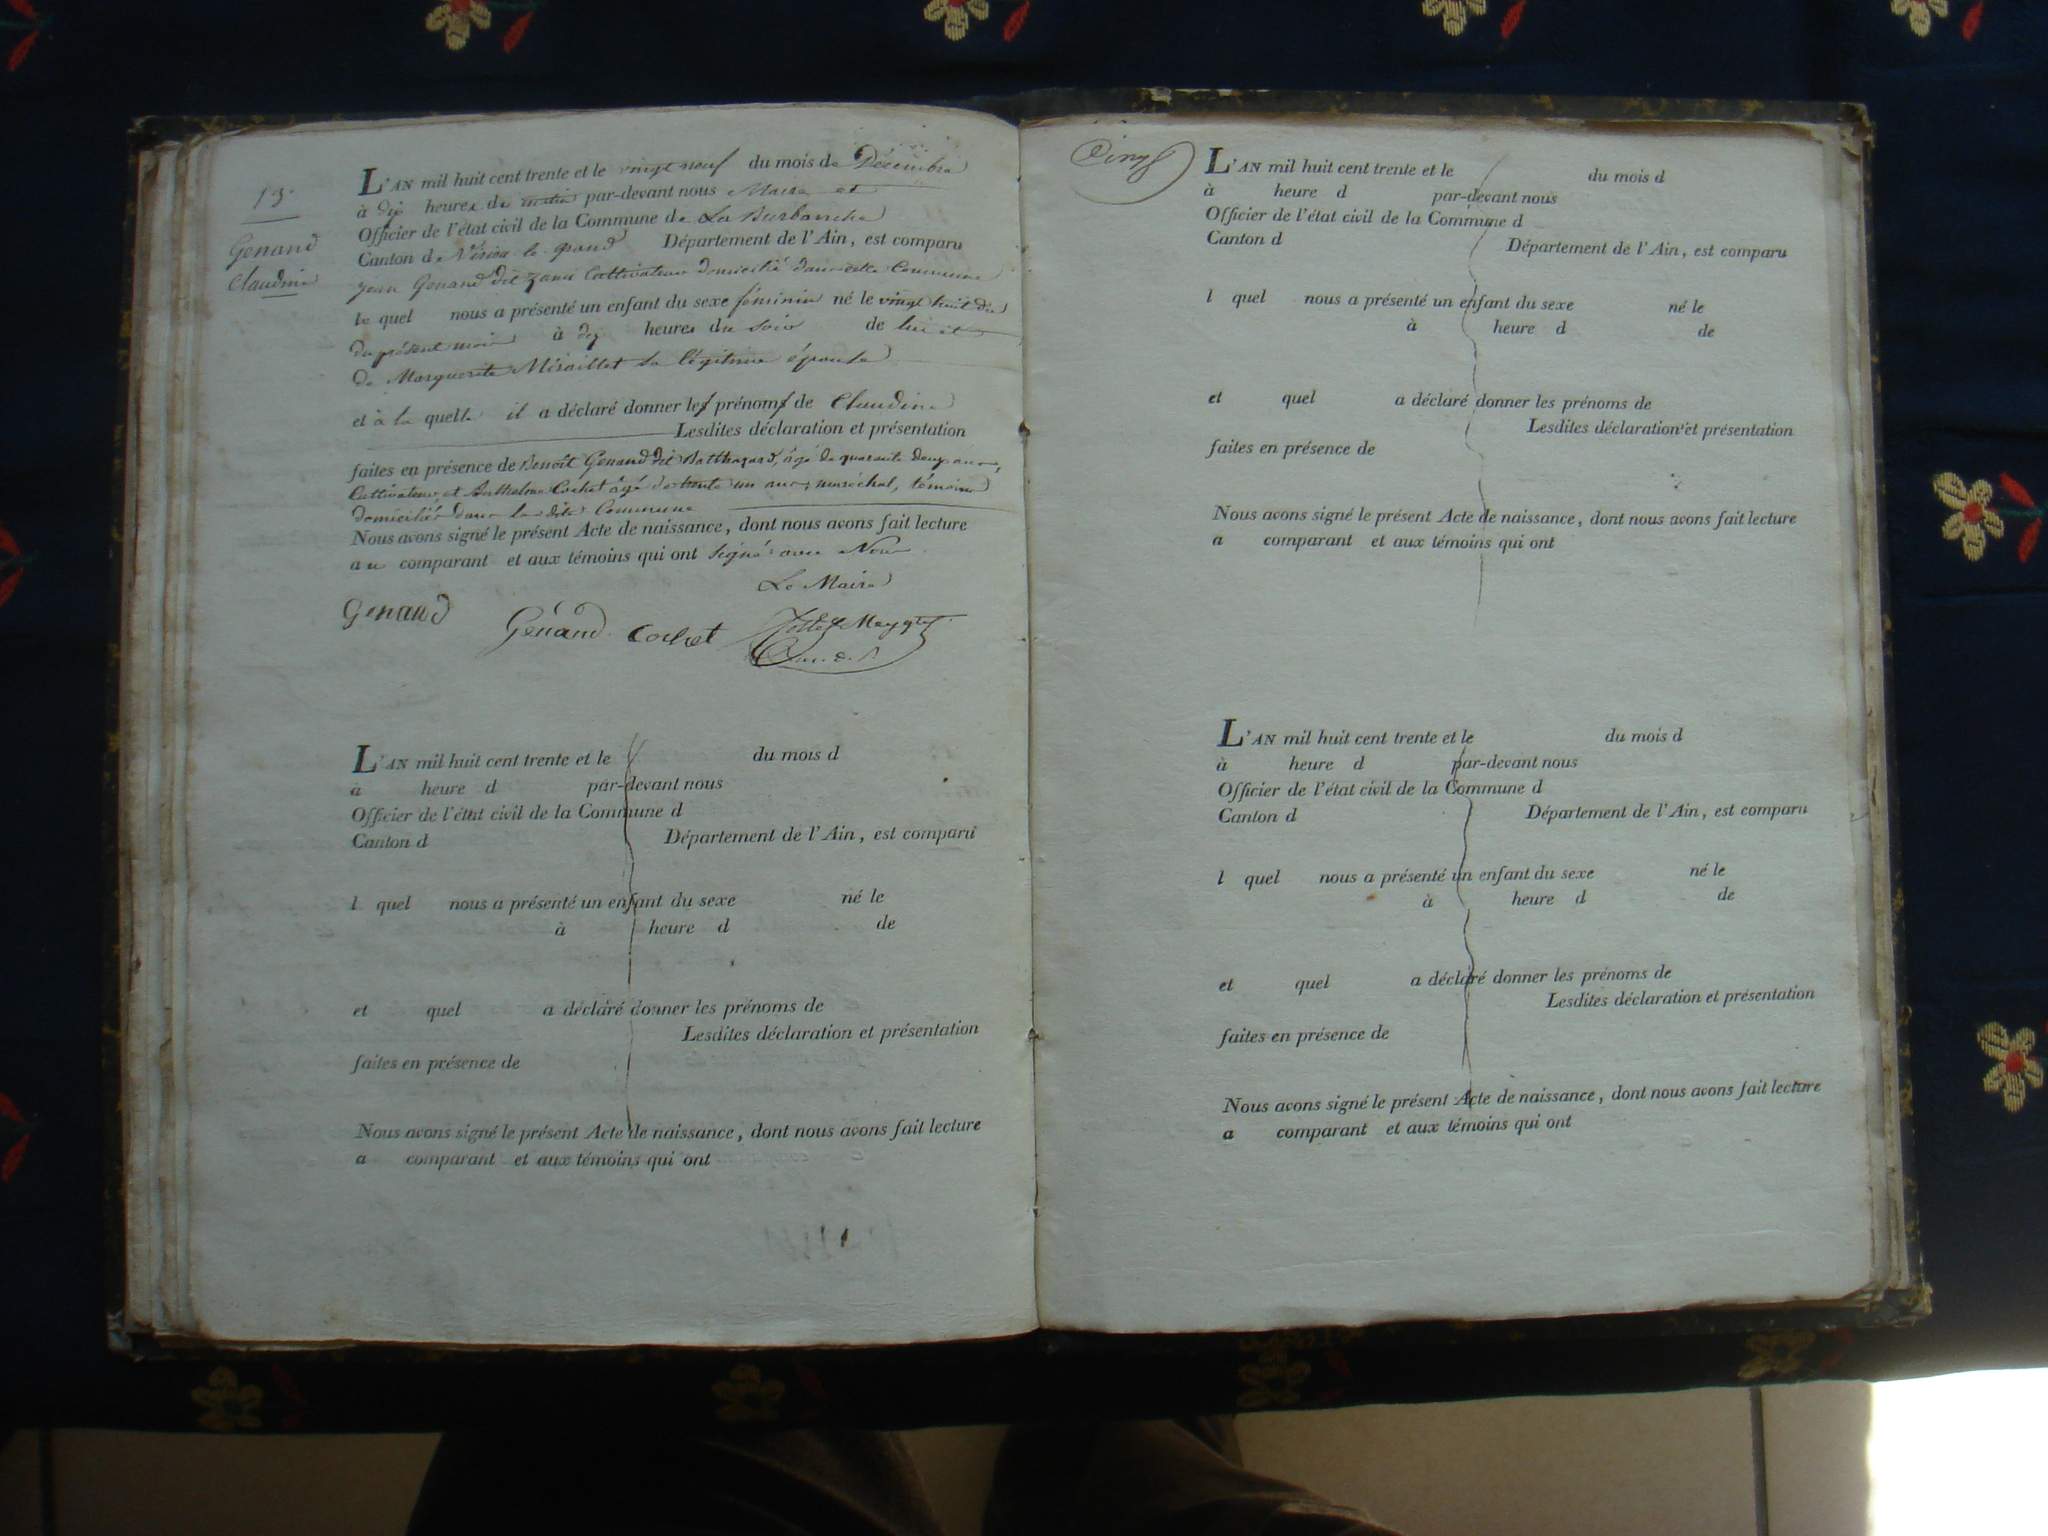 19.
Genand
Claudine
L'AN mil huit cent trente et le vingt neuf du mois de Décembre
à dix heures du matin par-devant nous Maire et
Officier de l'état civil de la Commune de La Burbanche
Canton de Virieu le grand Département de l'Ain, est comparu
jean Genand dit Cultivateur domicilié dans cette Commune
le quel nous a présenté un enfant du sexe féminin né le vingt huit du
du présent mois à dix heures du soir de lui et
de Marguerite Miraillet sa légitime épouse
et à la quelle il a déclaré donner les prénoms de Claudine
Lesdites déclaration et présentation
faites en présence de Benoît Genand dit Balthazard, âgé de quarante deux ans,
Cultivateur, et Anthelme Cochet âgé de trente un ans, maréchal, témoins
domiciliés dans la dite Commune
Nous avons signé le présent Acte de naissance, dont nous avons fait lecture
au comparant et aux témoins qui ont signé avec Nous
Le Maire
Genand Génand Cochet
L'AN mil huit cent trente et le du mois d
à heure d par-devant nous
Officier de l'état civil de la Commune d
Canton d Département de l'Ain, est comparu
l quel nous a présenté un enfant du sexe né le
à heure d de
et quel a déclaré donner les prénoms de
Lesdites déclaration et présentation
faites en présence de
Nous avons signé le présent Acte de naissance, dont nous avons fait lecture
a comparant et aux témoins qui ont
Cinq
L'AN mil huit cent trente et le du mois d
à heure d par-devant nous
Officier de l'état civil de la Commune d
Canton d Département de l'Ain, est comparu
l quel nous a présenté un enfant du sexe né le
à heure d de
et quel a déclaré donner les prénoms de
Lesdites déclaration et présentation
faites en présence de
Nous avons signé le présent Acte de naissance, dont nous avons fait lecture
a comparant et aux témoins qui ont
L'AN mil huit cent trente et le du mois d
à heure d par-devant nous
Officier de l'état civil de la Commune d
Canton d Département de l'Ain, est comparu
l quel nous a présenté un enfant du sexe né le
à heure d de
et quel a déclaré donner les prénoms de
Lesdites déclaration et présentation
faites en présence de
Nous avons signé le présent Acte de naissance, dont nous avons fait lecture
a comparant et aux témoins qui ont